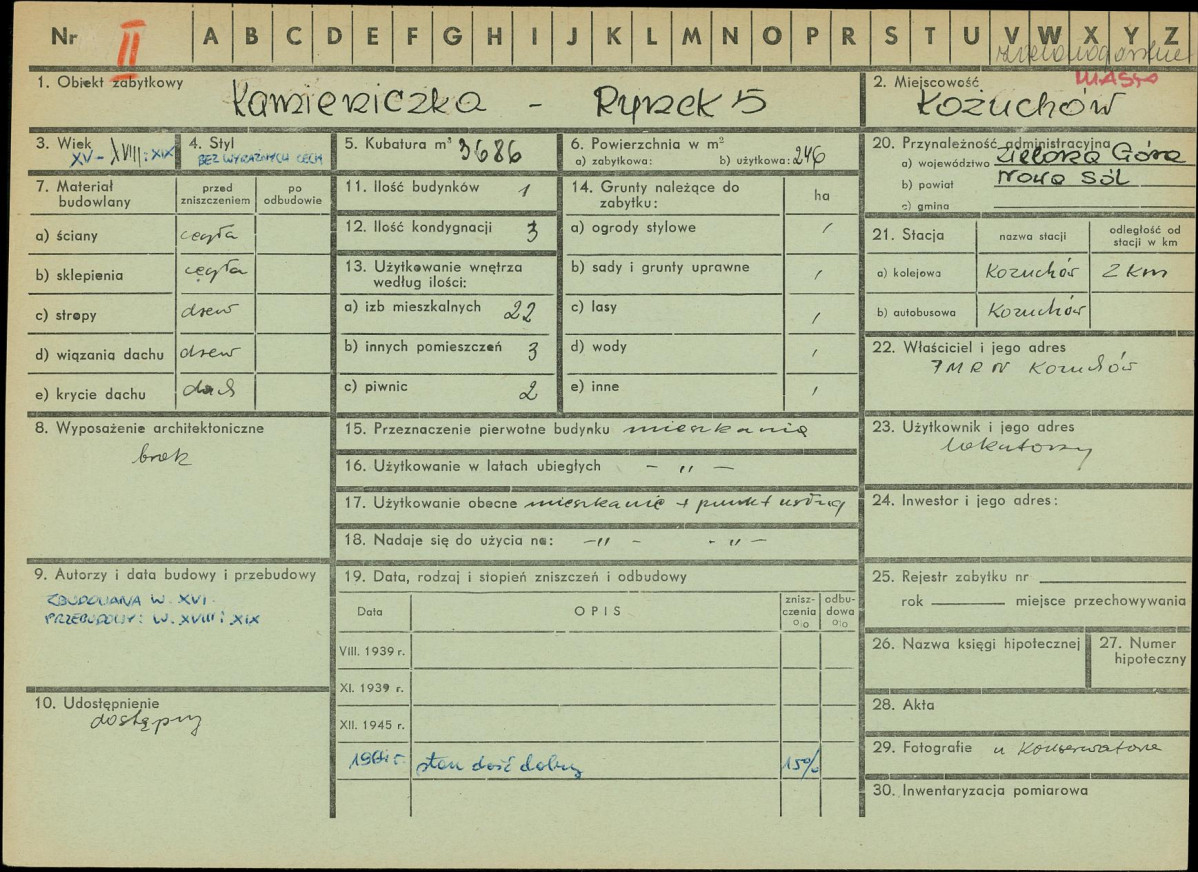 Nr II A B C D E F G H I J K L M N O P R S T U V W X Y Z
zielonogórskie
MIASTO
1. Obiekt zabytkowy
Kamieniczka - Rynek 5
2. Miejscowość
Kożuchów
3. Wiek
XV-XVIII i XIX
4. Styl
BEZ WYRAŹNYCH CECH
5. Kubatura m³ 3686
6. Powierzchnia w m²
a) zabytkowa: b) użytkowa: 246
20. Przynależność administracyjna
a) województwo Zielona Góra
b) powiat Nowa Sól
c) gmina
7. Materiał budowlany
przed zniszczeniem
po odbudowie
a) ściany cegła
b) sklepienia cegła
c) stropy drew
d) wiązania dachu drew
e) krycie dachu dach
11. Ilość budynków 1
12. Ilość kondygnacji 3
13. Użytkowanie wnętrza
według ilości:
a) izb mieszkalnych 22
b) innych pomieszczeń 3
c) piwnic 2
14. Grunty należące do
zabytku:
ha
a) ogrody stylowe
b) sady i grunty uprawne
c) lasy
d) wody
e) inne
21. Stacja
nazwa stacji
odległość od
stacji w km
a) kolejowa Kożuchów 2 km
b) autobusowa Kożuchów
22. Właściciel i jego adres
PMRN Kożuchów
8. Wyposażenie architektoniczne
brak
15. Przeznaczenie pierwotne budynku mieszkania
16. Użytkowanie w latach ubiegłych - " -
17. Użytkowanie obecne mieszkanie + punkt usług
18. Nadaje się do użycia na: - " - - " -
23. Użytkownik i jego adres
lokatorzy
24. Inwestor i jego adres:
9. Autorzy i data budowy i przebudowy
ZBUDOWANA W. XVI.
PRZEBUDOWY: W. XVIII i XIX
10. Udostępnienie
dostępny
19. Data, rodzaj i stopień zniszczeń i odbudowy
Data
OPIS
znisz-
czenia
%
odbu-
dowa
%
VIII. 1939 r.
XI. 1939 r.
XII. 1945 r.
stan dość dobry 15%
25. Rejestr zabytku nr
rok miejsce przechowywania
26. Nazwa księgi hipotecznej
27. Numer
hipoteczny
28. Akta
29. Fotografie u Konserwatora
30. Inwentaryzacja pomiarowa